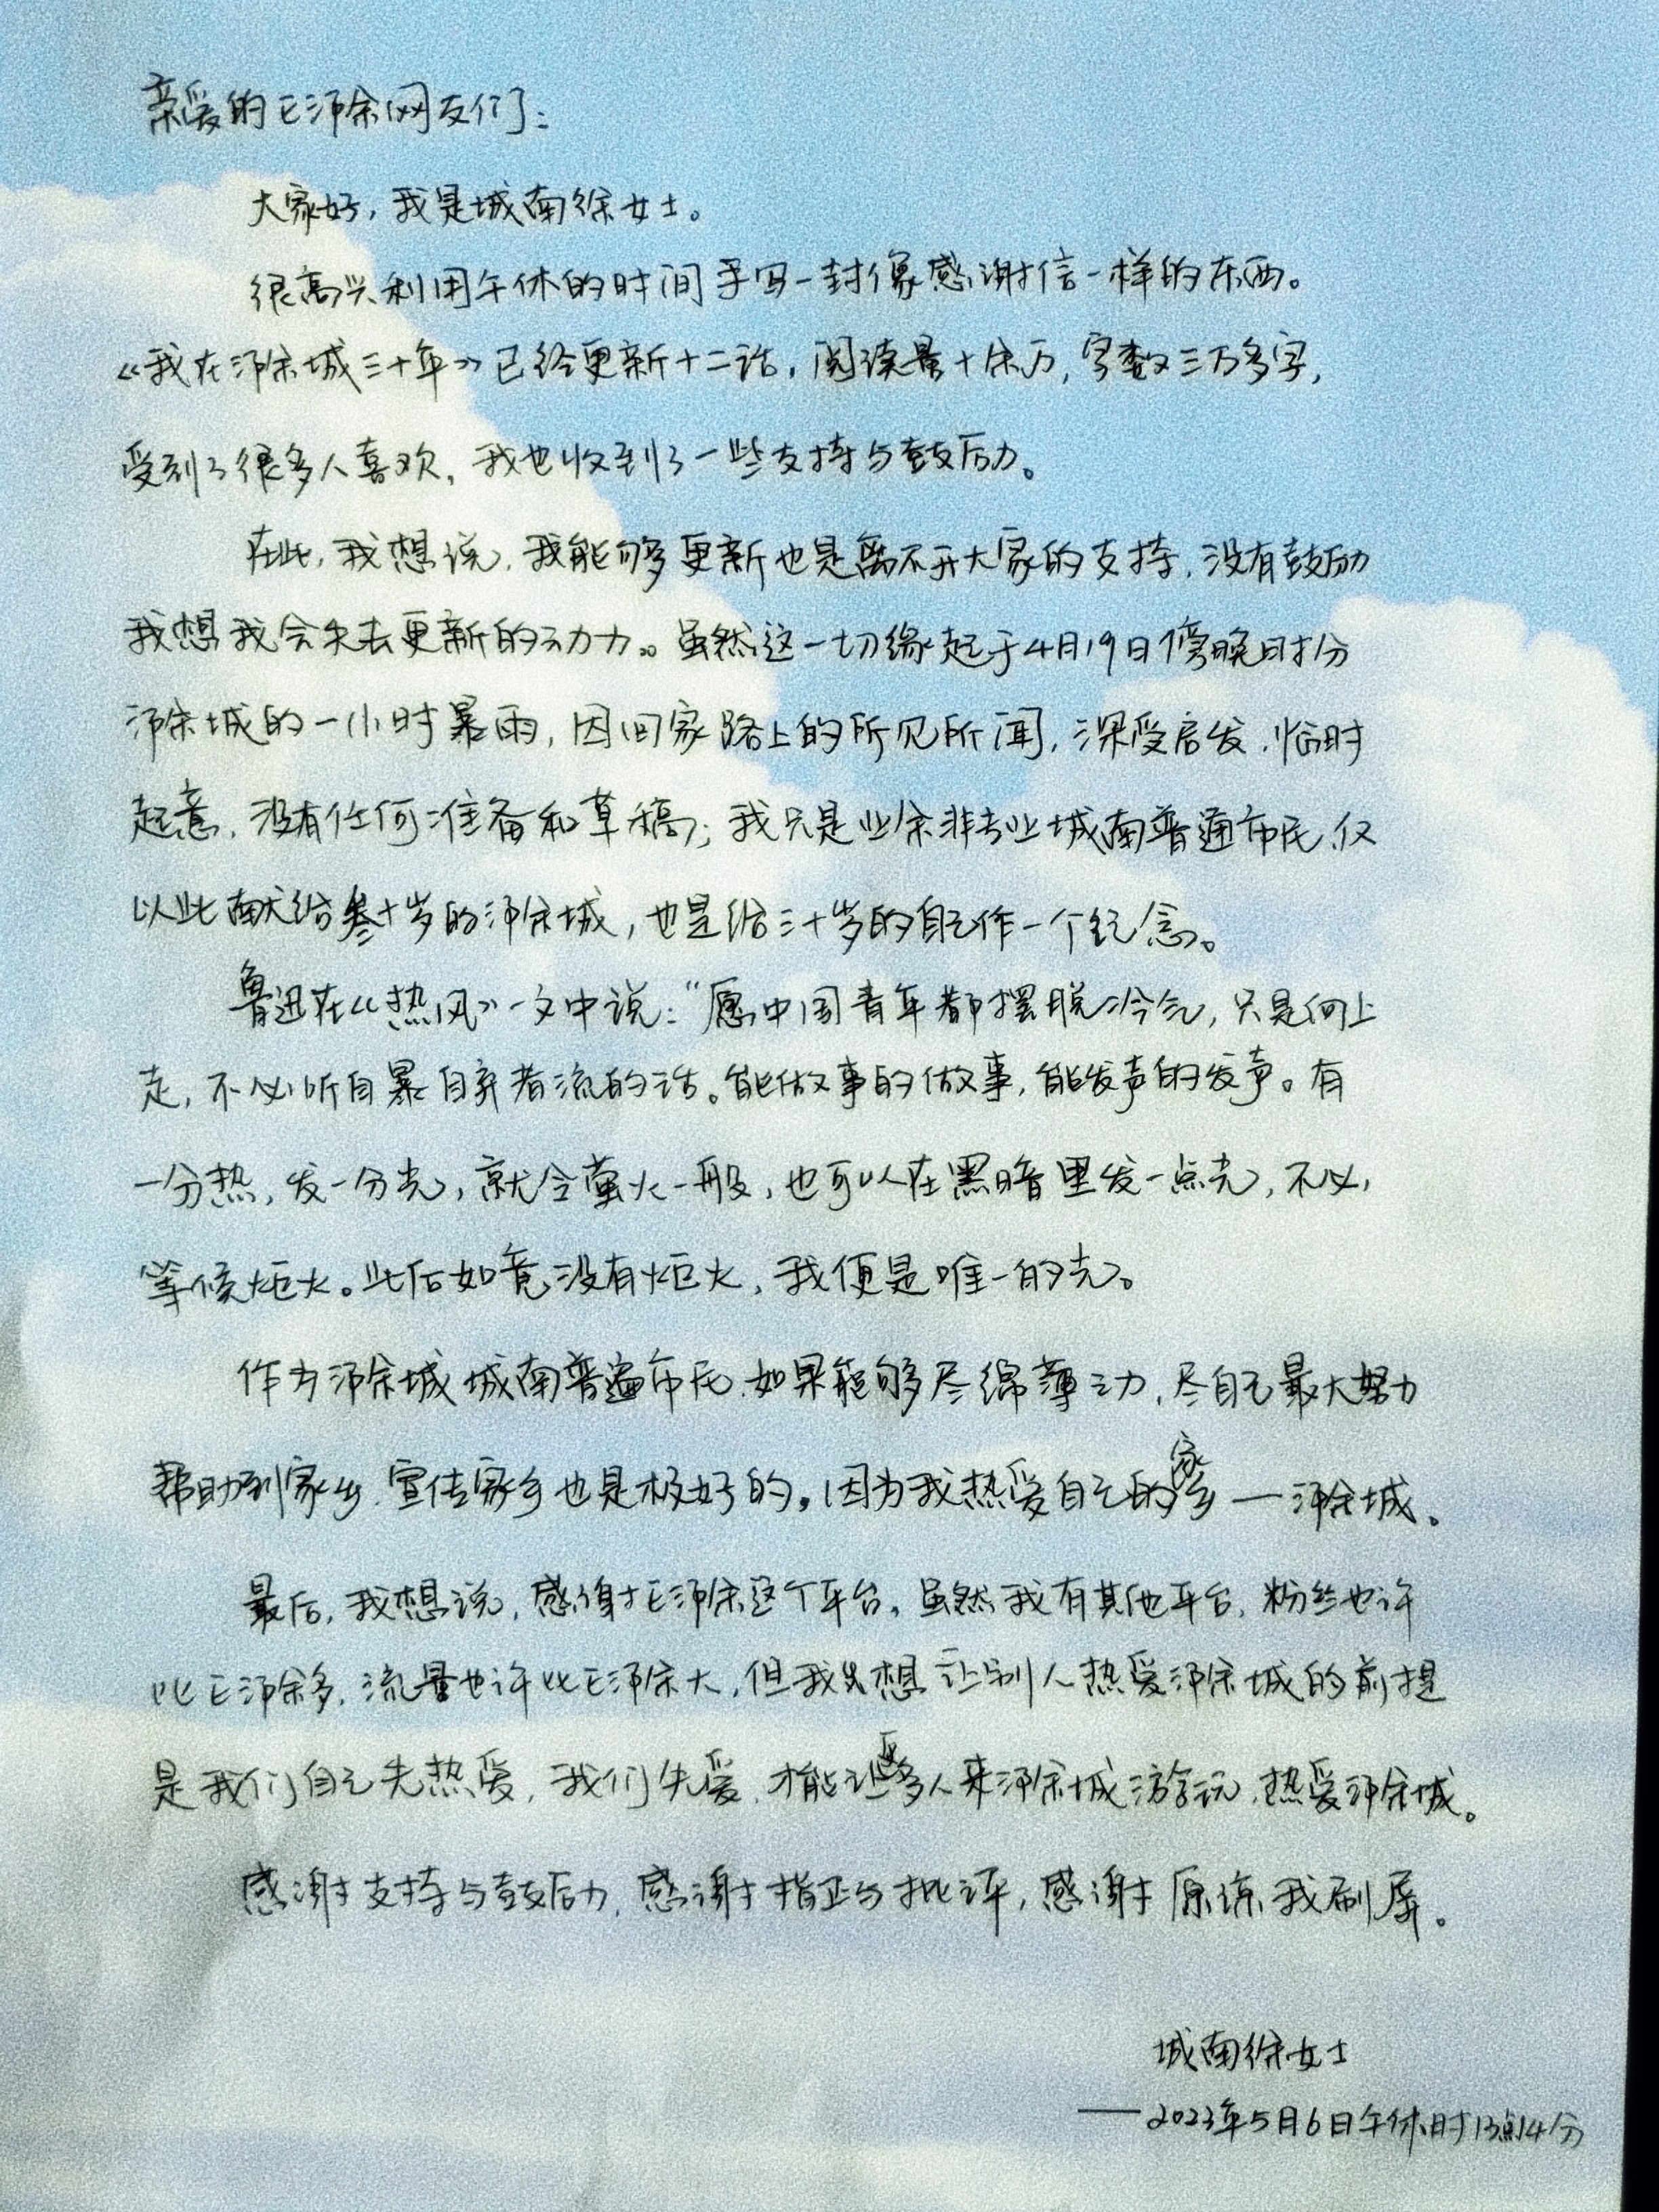 亲爱的E沛余网友们:
大家好,我是城南徐女士。
很高兴利用午休的时间手写一封像感谢信一样的东西。
《我在沛余城三十年》已经更新十二话,阅读量十余万,字数三万多字,
受到了很多人喜欢,我也收到了一些支持与鼓励。
在此,我想说,我能够更新也是离不开大家的支持,没有鼓励
我想我会失去更新的动力。虽然这一切缘起于4月19日傍晚时分
沛余城的一小时暴雨,因回家路上的所见所闻,深受启发,临时
起意,没有任何准备和草稿;我只是业余非专业城南普通市民,仅
以此献给叁十岁的沛余城,也是给三十岁的自己作一个纪念。
鲁迅在《热风》一文中说:“愿中国青年都摆脱冷气,只是向上
走,不必听自暴自弃者流的话。能做事的做事,能发声的发声。有
一分热,发一分光,就令萤火一般,也可以在黑暗里发一点光,不必
等候炬火。此后如竟没有炬火,我便是唯一的光。
作为沛余城城南普通市民,如果能够尽绵薄之力,尽自己最大努力
帮助到家乡,宣传家乡也是极好的。因为我热爱自己的家乡——沛余城。
最后,我想说,感谢E沛余这个平台。虽然我有其他平台,粉丝也许
比E沛余多,流量也许比E沛余大,但我只想让别人热爱沛余城的前提
是我们自己先热爱,我们先爱,才能让更多人来沛余城游玩,热爱沛余城。
感谢支持与鼓励,感谢指正与批评,感谢原谅我刷屏。
城南徐女士
——2023年5月6日午休时13点14分